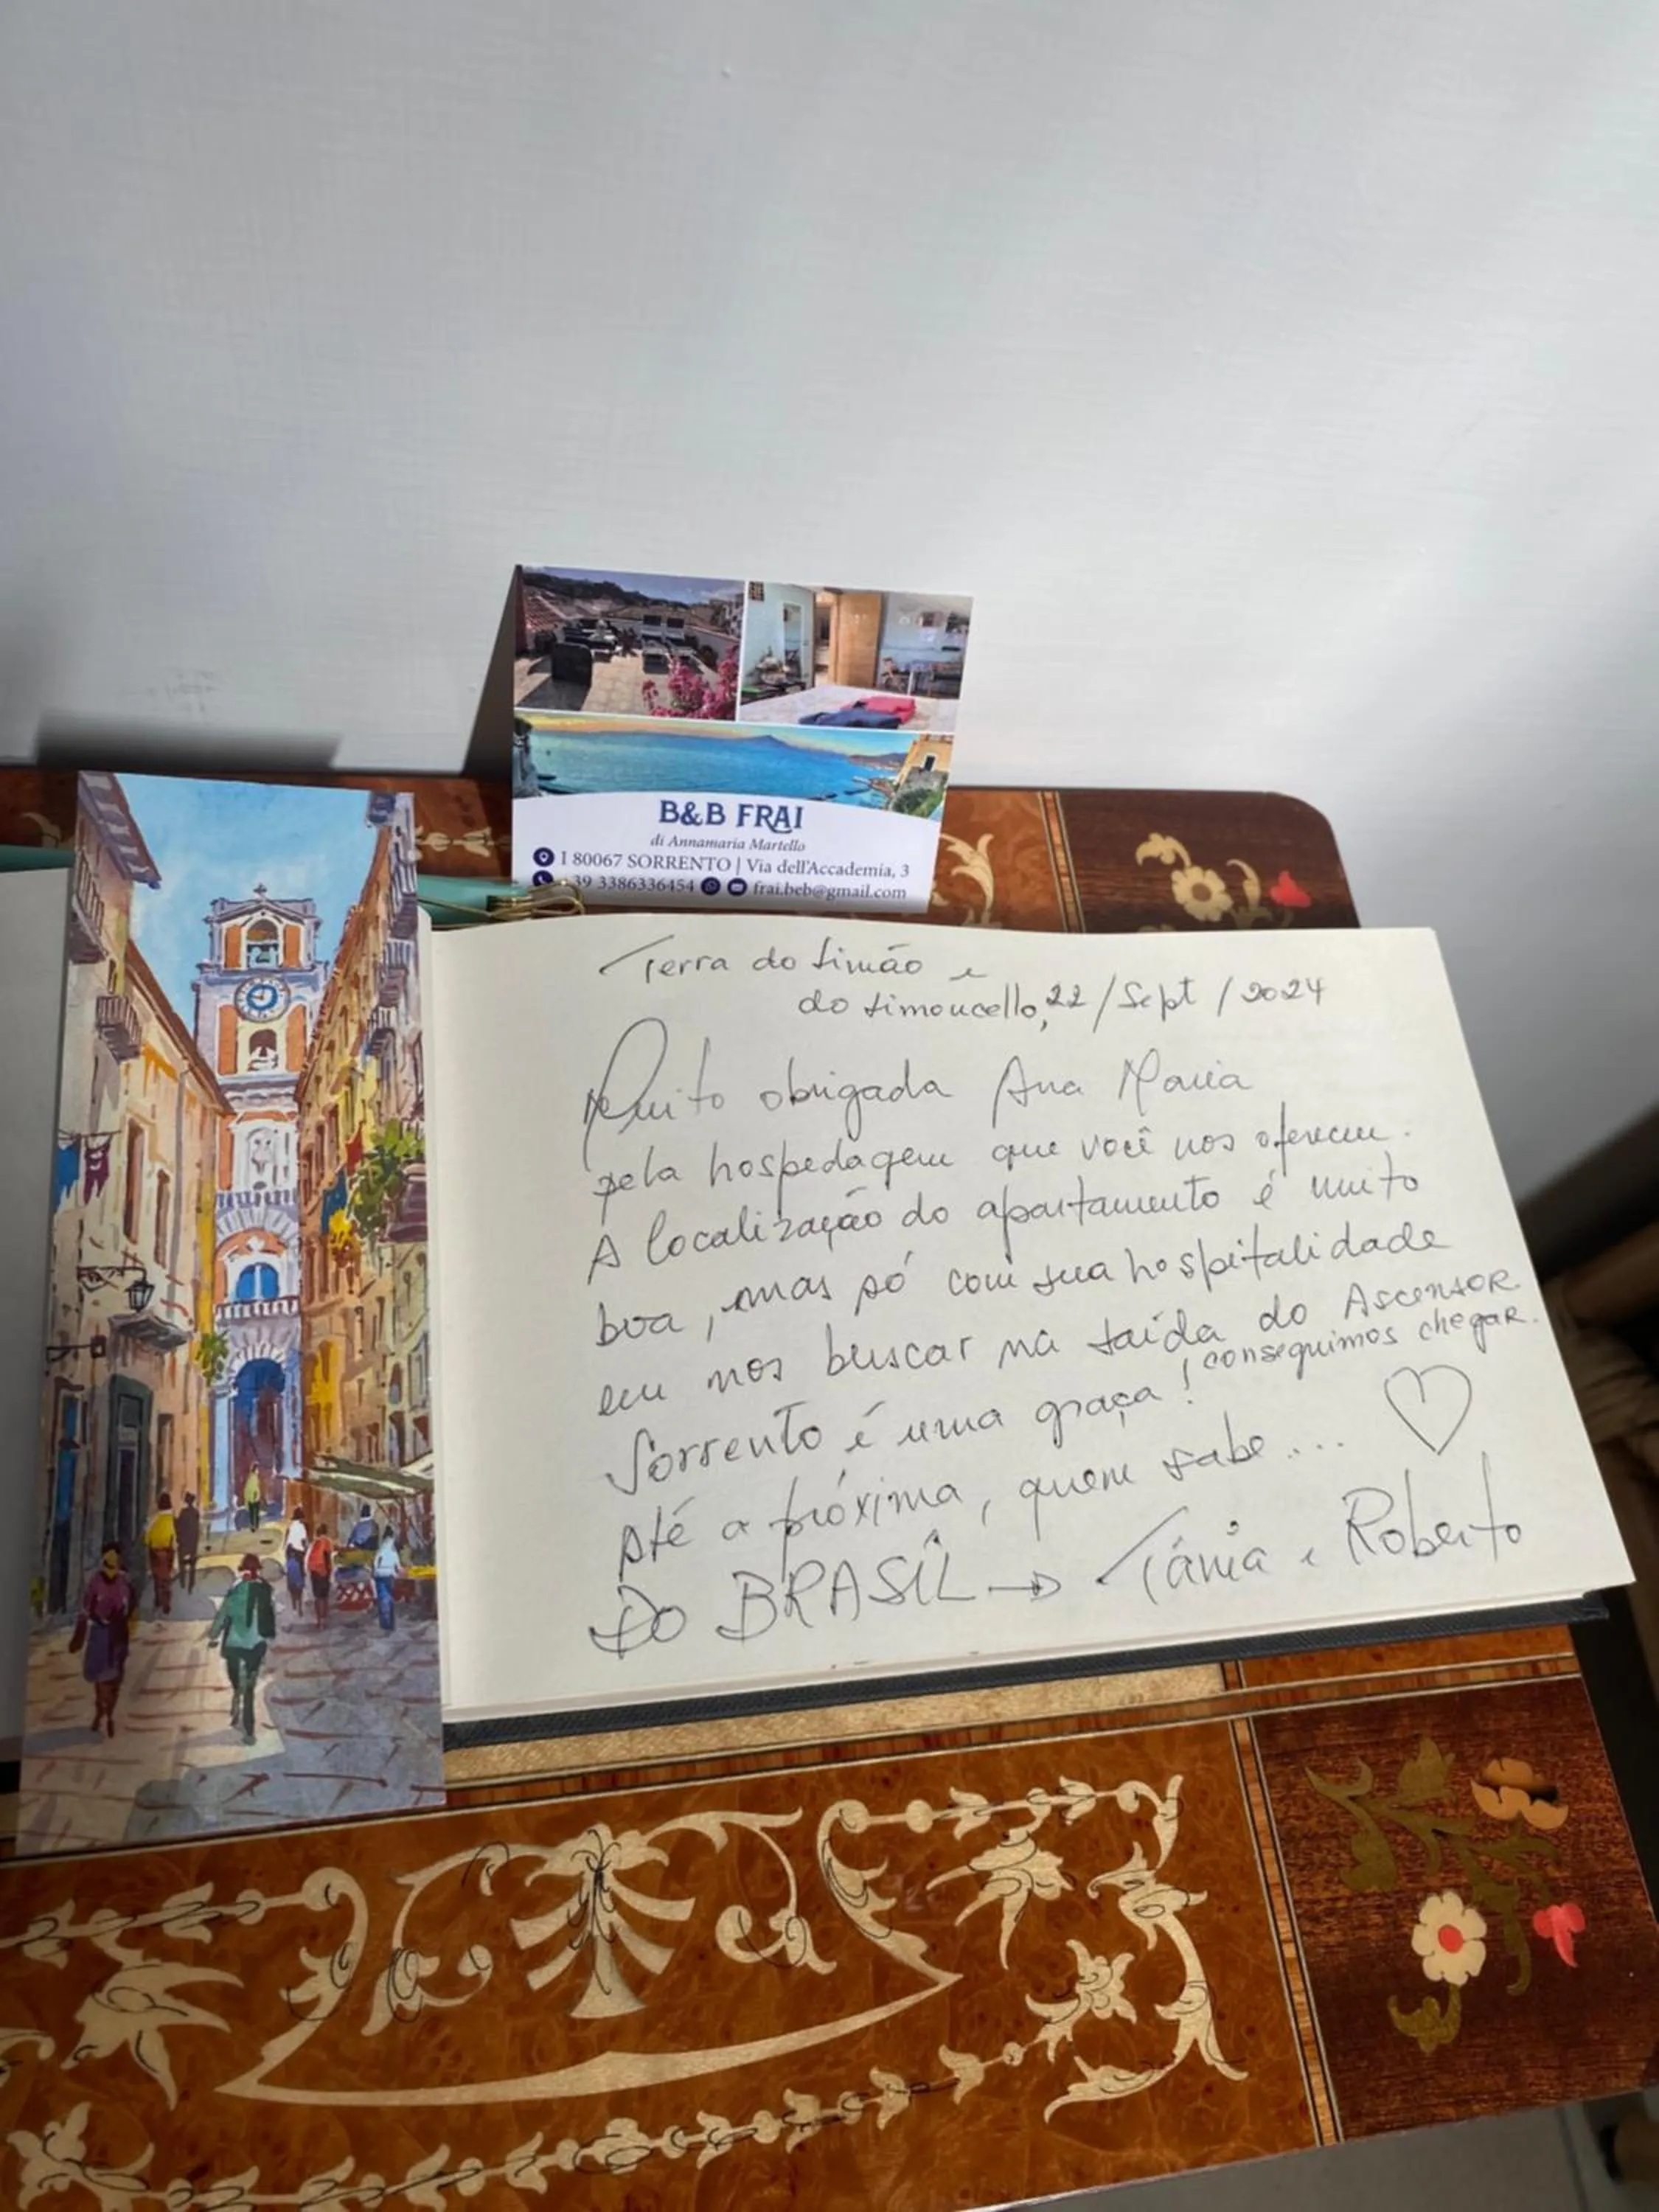 B&B FRAI
di Annamaria Martello
I 80067 SORRENTO | Via dell'Accademia, 3
39 3386336454 frai.beb@gmail.com
Terra do Limão e
do Limoncello, 22/Sept/2024
Muito obrigada Ana Maria
pela hospedagem que você nos ofereceu.
A localização do apartamento é muito
boa, mas só com sua hospitalidade
em nos buscar na saída do Ascensor
conseguimos chegar.
Sorrento é uma graça!
Até a próxima, quem sabe....
Do BRASIL → Tânia e Roberto